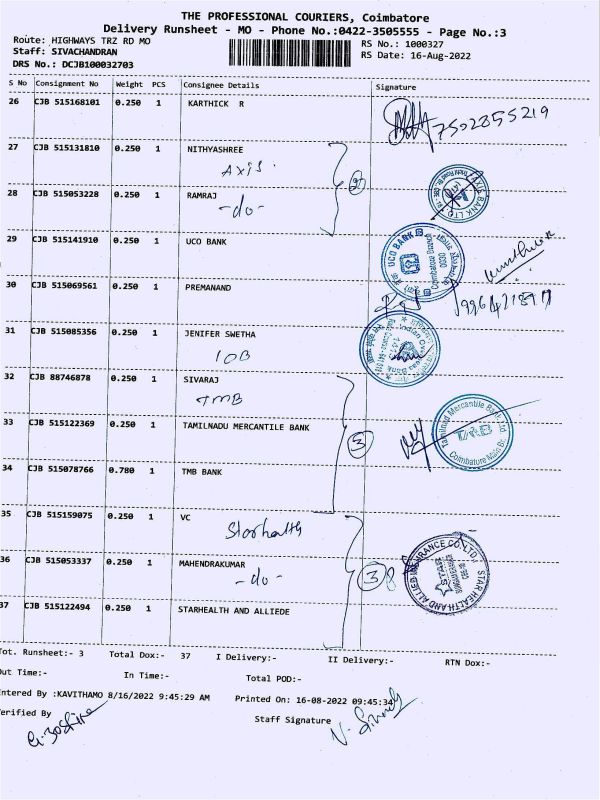 THE PROFESSIONAL COURIERS, Coimbatore
Delivery Runsheet - MO - Phone No.:0422-3505555 - Page No.:3
Route: HIGHWAYS TRZ RD MO
RS No.: 1000327
Staff: SIVACHANDRAN
RS Date: 16-Aug-2022
DRS No.: DCJB100032703
S No Consignment No Weight PCS Consignee Details Signature
26 CJB 515168101 0.250 1 KARTHICK R
7502855219
27 CJB 515131810 0.250 1 NITHYASHREE
Axis.
2
28 CJB 515053228 0.250 1 RAMRAJ
-do-
AXIS BANK LTD
29 CJB 515141910 0.250 1 UCO BANK
UCO BANK
Coimbatore Branch
0030
30 CJB 515069561 0.250 1 PREMANAND
31 CJB 515085356 0.250 1 JENIFER SWETHA
IOB
Indian Overseas Bank
32 CJB 88746878 0.250 1 SIVARAJ
TMB
33 CJB 515122369 0.250 1 TAMILNADU MERCANTILE BANK
3
Tamilnad Mercantile Bank Ltd
Coimbatore Main Br.
34 CJB 515078766 0.780 1 TMB BANK
35 CJB 515159075 0.250 1 VC
Starhealth
36 CJB 515053337 0.250 1 MAHENDRAKUMAR
-do-
3
STAR HEALTH AND ALLIED INSURANCE CO. LTD.
37 CJB 515122494 0.250 1 STARHEALTH AND ALLIEDE
Tot. Runsheet:- 3 Total Dox:- 37 I Delivery:- II Delivery:- RTN Dox:-
Out Time:- In Time:- Total POD:-
Entered By :KAVITHAMO 8/16/2022 9:45:29 AM Printed On: 16-08-2022 09:45:34
Verified By
Staff Signature